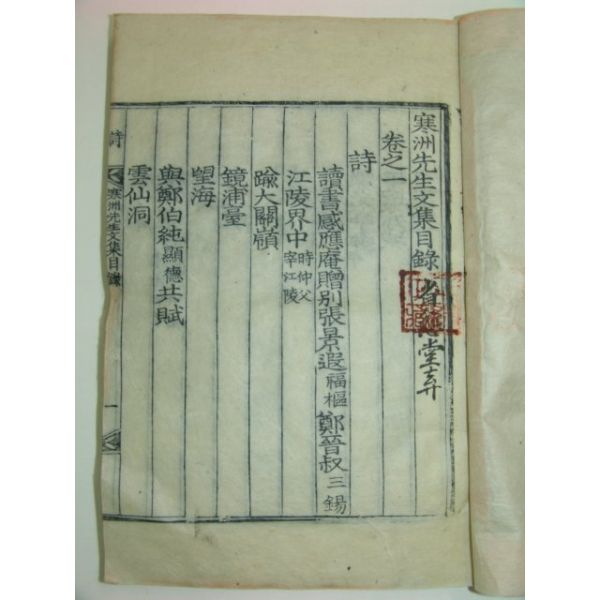 寒洲先生文集目錄
堂弆
卷之一
詩
讀書感應菴贈別張景遐福樞鄭晉叔三錫
江陵界中時仲父宰江陵
踰大關嶺
鏡浦臺
望海
與鄭伯純顯德共賦
雲仙洞
詩
寒洲先生文集目錄
一